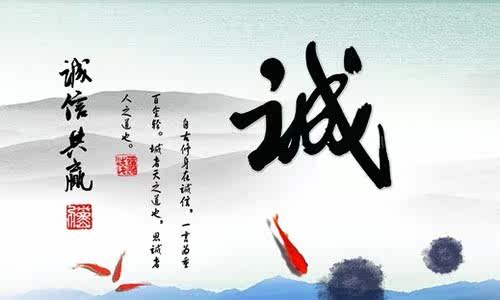 诚
自古修身在诚信，一言为重
百金轻。诚者天之道也，思诚者
人之道也。
诚信共赢